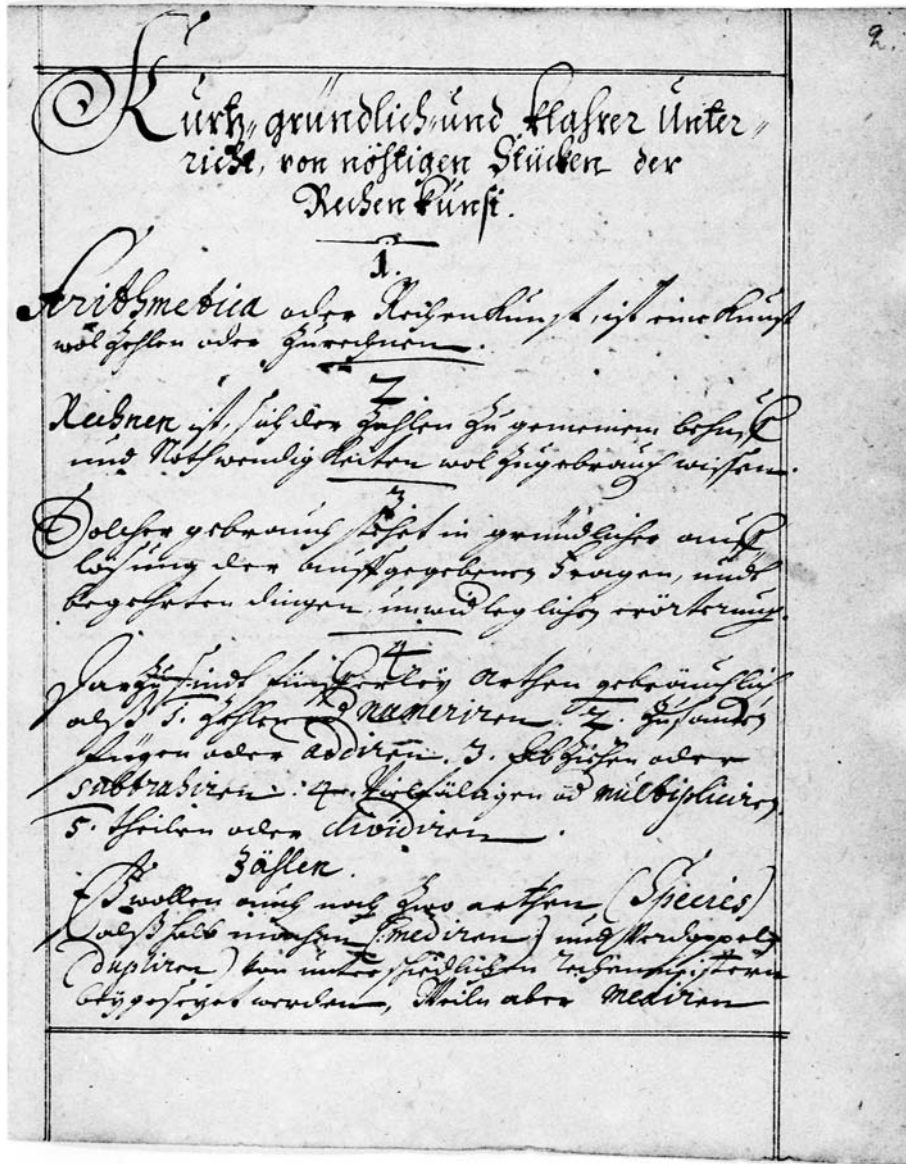 2.
Kurtz- gründlich- und klahrer Unter-
richt, von nöhtigen Stücken der
Rechen kunst.
1.
Arithmetica oder Rechenkunst, ist eine Kunst
wol Zehlen oder Zurechnen.
2
Rechnen ist, sich der Zahlen zu gemeinem behuff
und Nothwendigkeiten wol zugebrauch wissen.
3.
Solcher gebrauch stehet in gründlicher auff-
lösung der auffgegebenen Fragen, undt
begehrten dingen unwidleglichen erörterung.
4
Darzu sindt fünfferley Arthen gebräuchlich
alß 1. Zehlen od numeriren. 2. Zusamen
fügen oder addiren. 3. Abziehen oder
subtrahiren. 4. Vielfältigen od multipliciren
5. theilen oder dividiren.
Zählen.
Eß wollen auch noch zwo arthen (Species)
alß halb machen (mediren) und Verdoppeln
(dupliren) von unterschiedlichen Rechenmeistern
beygesetzet werden, Weiln aber mediren